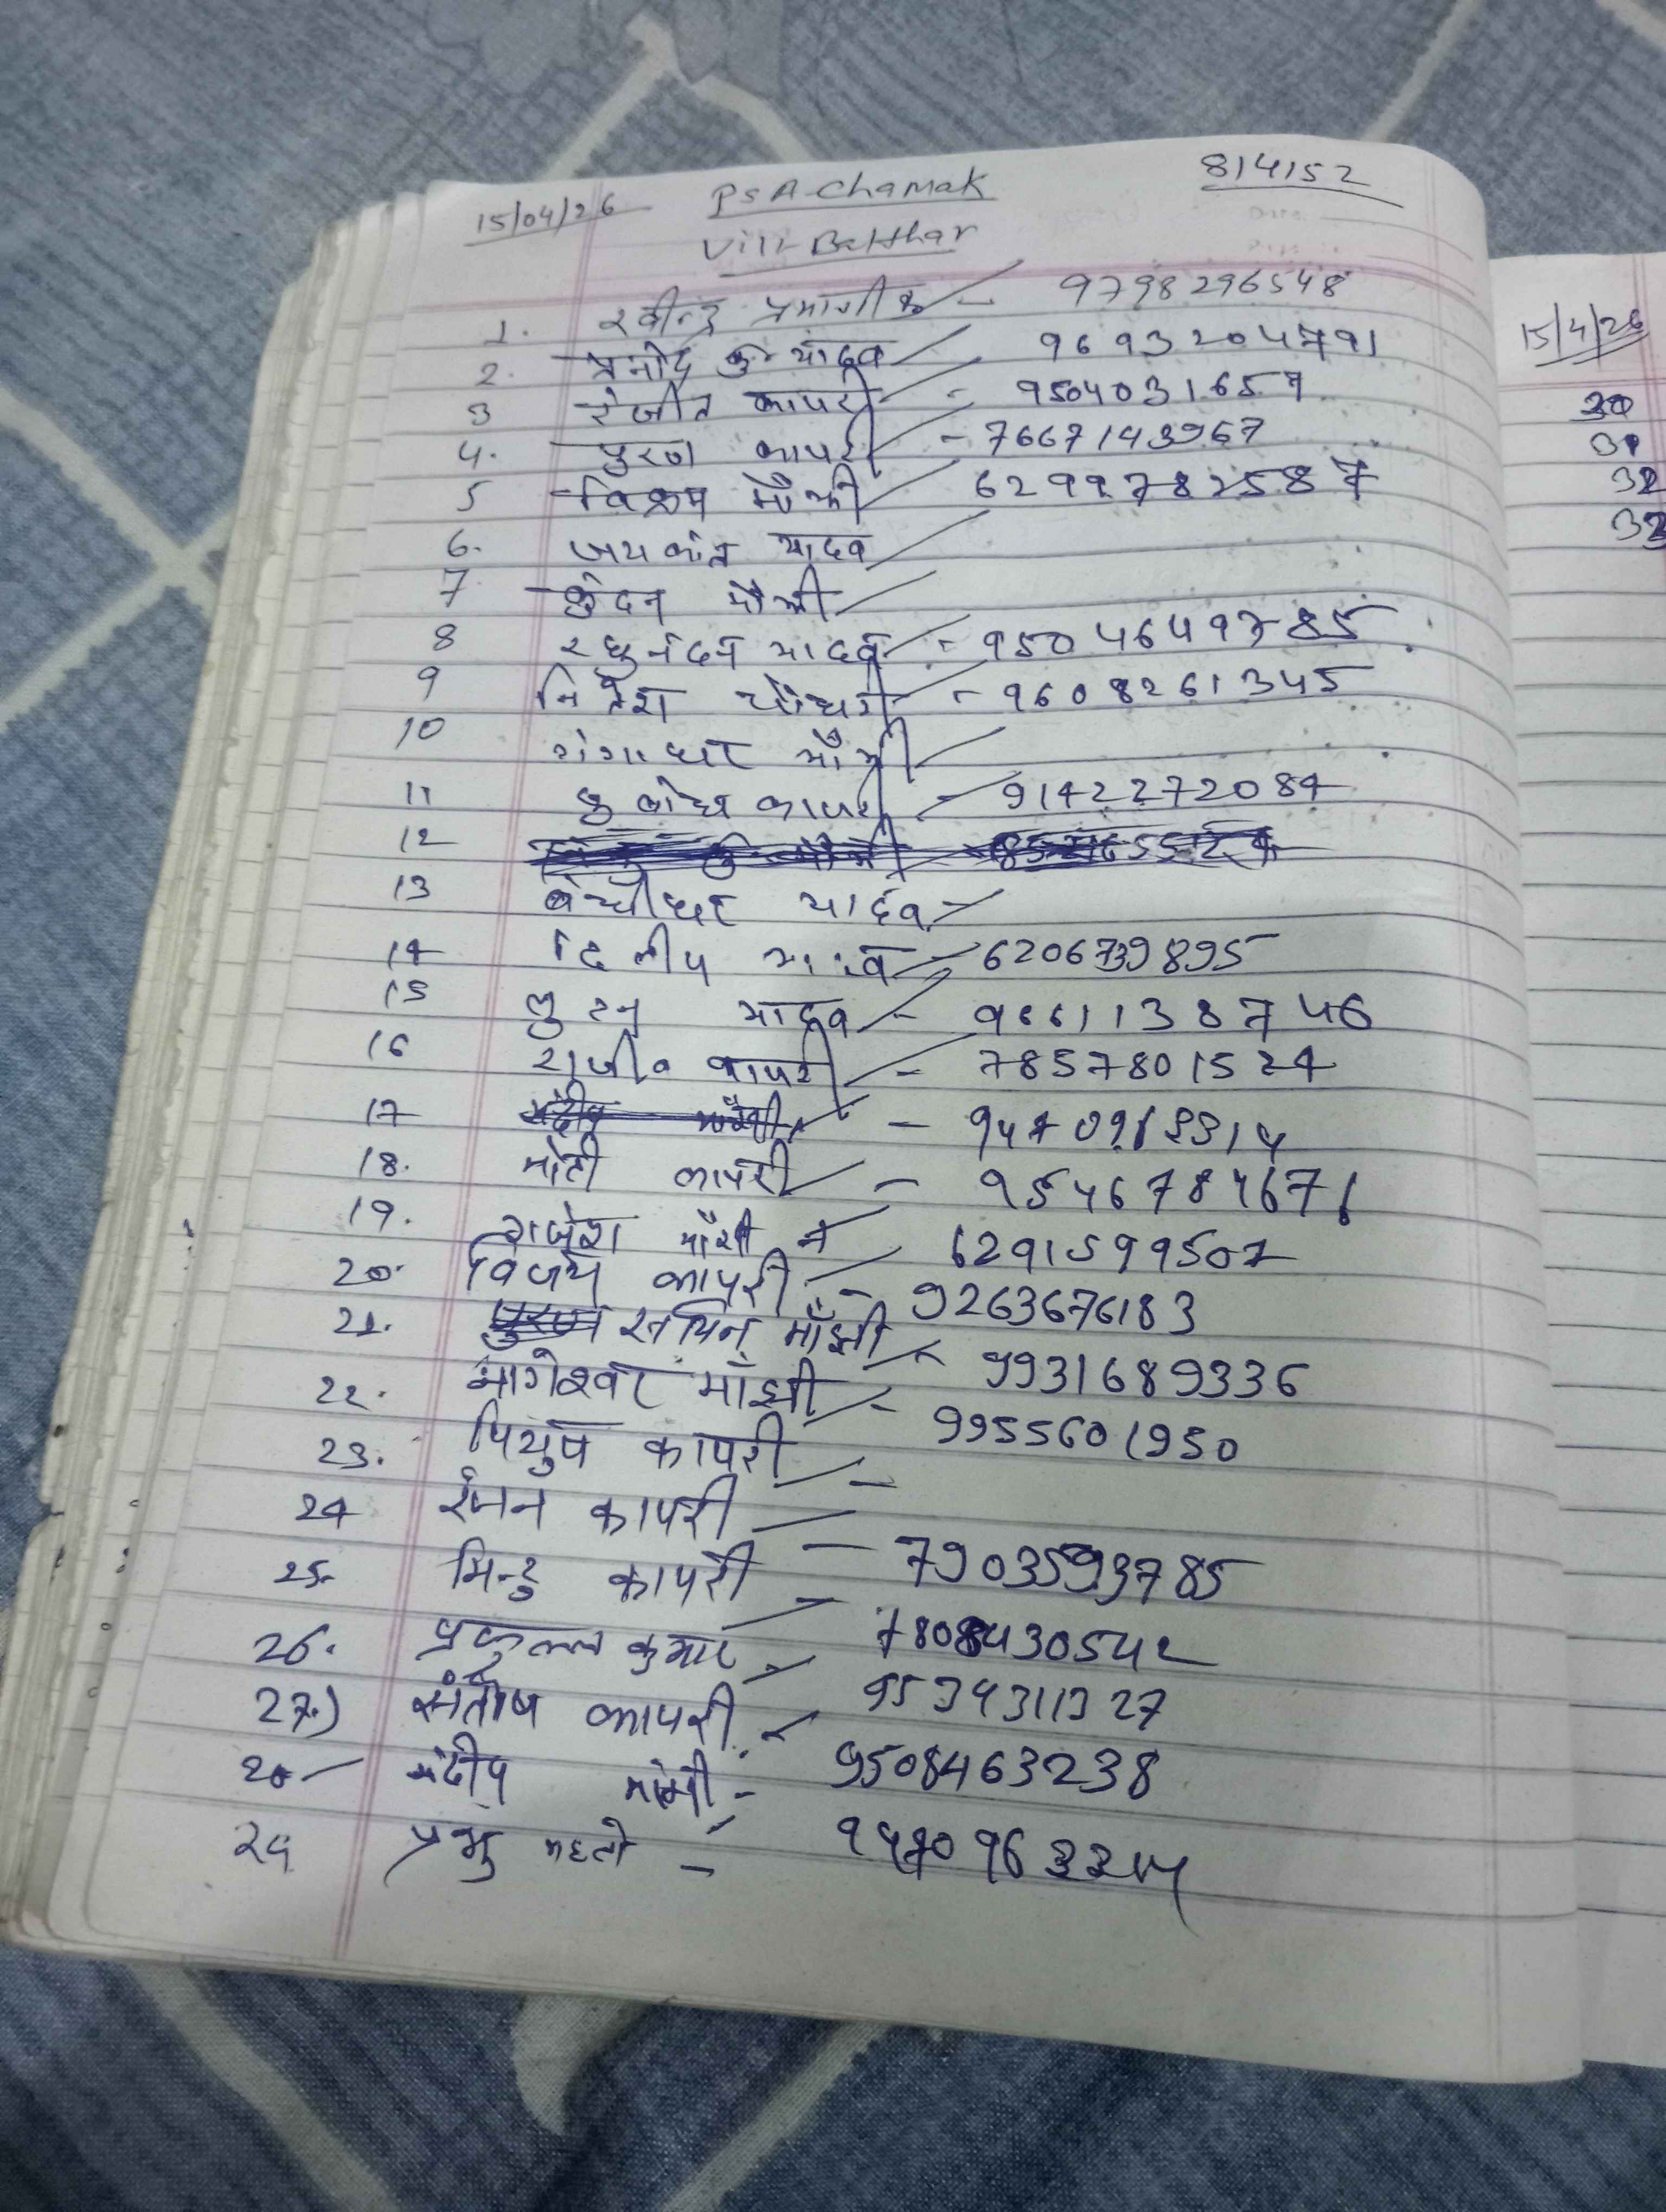 15/04/26 PSA-Chamak 814152
Vill-Belthar
1. रवीन्द्र प्रमाणीक - 9798296548
2. प्रमोद कु॰ यादव 9693204791
3 रंजीत कापरी - 9504031657
4. पुरण कापरी - 7667143967
5 विक्रम माँझी 6299782587
6. जयकांत यादव
7 कुंदन माँझी
8 रघुनंदन यादव - 9504649785
9 नितेश चौधरी - 9608261345
10 गंगाधर माँझी
11 सुबोध कापरी - 9142272084
12
13 बंशीधर यादव -
14 दिलीप यादव - 6206739895
15 लुटन यादव - 9661138746
16 राजीव कापरी - 7857801524
17 संदीप माँझी - 9470963314
18. मोती कापरी - 9546784671
19. राजेश माँझी 6291599507
20. विजय कापरी - 9263676183
21. पुरण सचिन माँझी - 9931689336
22. नागेश्वर माँझी - 9955601950
23. पियुष कापरी -
24 रंजन कापरी - 7903593785
25. मिन्टु कापरी - 7808430542
26. प्रफुल्ल कुमार - 9534311327
27.) संतोष कापरी - 9508463238
28 संदीप माँझी -
29 प्रभु महतो - 9470963314
15/4/26
30
31
32
33